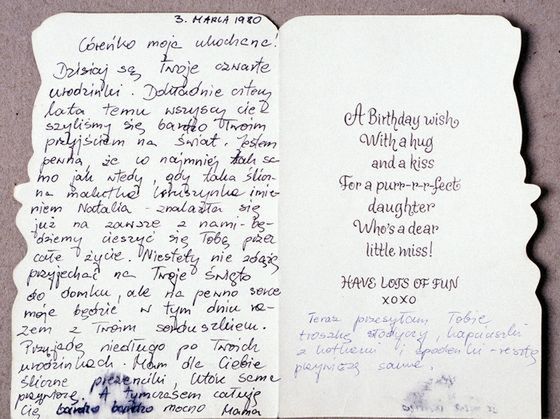 3. MARCA 1980
Córeńko moja ukochana!
Dzisiaj są Twoje czwarte
urodzinki. Dokładnie cztery
lata temu wszyscy cie-
szyliśmy się bardzo Twoim
przyjściem na świat. Jestem
pewna, że co najmniej tak sa-
mo jak wtedy, gdy taka ślicz-
na malutka okruszynka imie-
niem Natalia - znalazła się
już na zawsze z nami - bę-
dziemy cieszyć się Tobą przez
całe życie. Niestety nie zdążę
przyjechać na Twoje święto
do domku, ale na pewno serce
moje będzie w tym dniu ra-
zem z Twoim serduszkiem.
Przyjadę niedługo po Twoich
urodzinkach. Mam dla Ciebie
śliczne prezenciki, które sama
przywiozę. A tymczasem całuję
Cię bardzo bardzo mocno Mama
A Birthday wish
With a hug
and a kiss
For a purr-r-r-fect
daughter
Who's a dear
little miss!
HAVE LOTS OF FUN
XOXO
Teraz przesyłam Tobie
troszkę słodyczy,
z kotkami i spodenki - resztę
przywiozę sama.